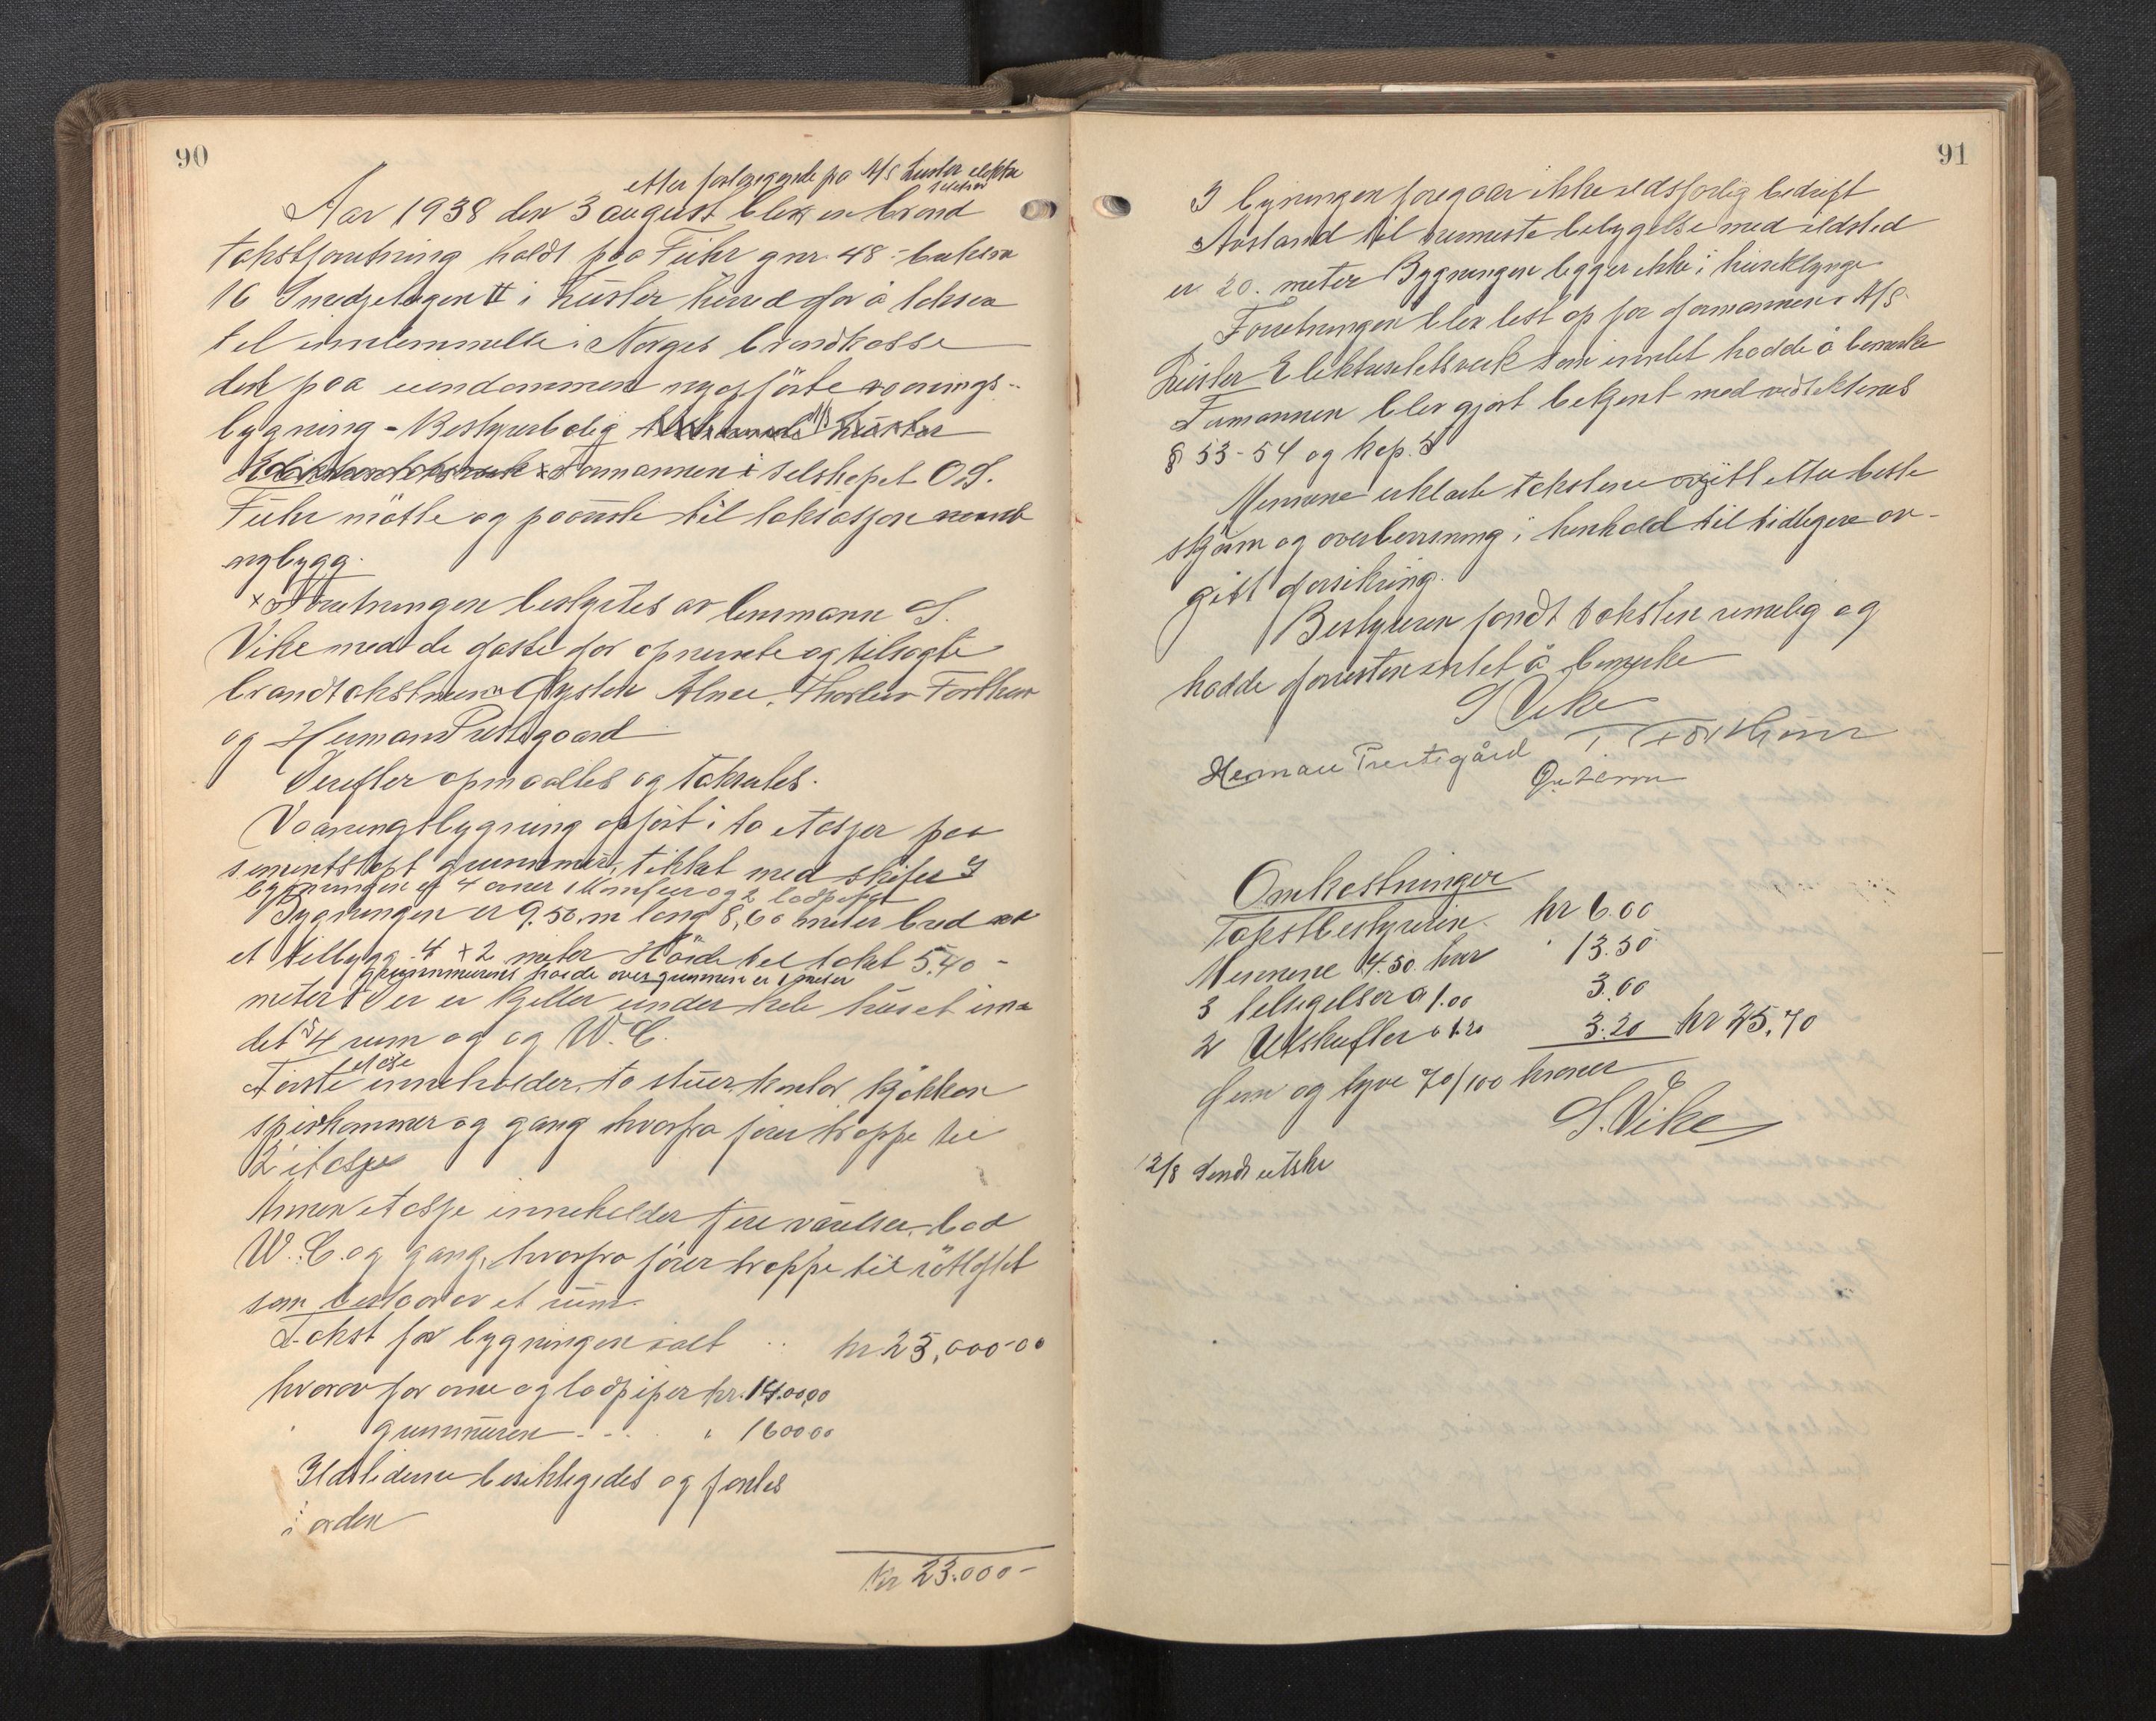 90
etter forlangende fra A/S Luster elektr
Aar 1938 den 3 august blev en brand
takstforretning holdt paa Fuhr gnr. 48 - bruksnr
16 Smedjehogen II i Luster herred for å taksere
til innlemmelse i Norges brandkasse
den paa eiendommen nyopförte vaanings-
bygning - Bestyrerbolig A/S Luster
Elektrisitetsverk x Formannen i selskapet O S.
Fuhr mötte og paaviste til taksasjon nevnte
nybygg.
x Forretningen bestyrtes av lensmann S.
Vike med de faste for opnevnte og tilsagte
brandtakstmenn Øysten Alme, Thorleiv Forthun
og Herman Prestegaard
Derefter opmaaltes og taksertes.
Vaaningsbygning opfört i to etasjer paa
sementstøpt grunnmur, tekket med skifer I
bygningen er 4 ovner 1 komfur og 2 lodpiper
Bygningen er 9.50 m lang 8,60 meter bred med
et tilbygg 4 x 2 meter Höide til taket 5.40 -
grunnmurens höide over grunnen er 1 meter
meter Der er kjeller under hele huset inn
delt i 4 rum og og W.C.
etasje
Förste inneholder to stuer, kontor kjökken
spiskammer og gang hvorfra förer trappe til
2 etasje
Annen etasje inneholder fire värelser, bad
W.C. og gang, hvorfra förer trappe til röstloftet
som bestaar av et rum.
Takst for bygningen ialt .. kr 23,000-00
hvorav for ovne og lodpiper kr. 1400,00
grunnmuren - - - " 1600 00
Ildstederne besiktigedes og fantes
i orden
Kr 23.000 -
91
I bygningen foregaar ikke ildsfarlig bedrift
Avstand til nermeste bebygelse med ildsted
er 20. meter Bygningen ligger ikke i huseklynge
Forretningen blev lest op for formannen i A/S.
Luster Elektrisitetsverk som inntet hadde å bemerke
Formannen blev gjort bekjent med vedtektenes
§ 53 - 54 og kap. 5
Mennene erklærte taksten avgitt etter beste
skjönn og overbevisning i henhold til tidligere av-
gitt forsikring.
Bestyreren fandt taksten rimelig og
hadde forresten intet å bemerke
S Vike
Herman Prestegård T. Forthun
Ø. Alme
Omkostninger
Takstbestyreren kr 6.00
Mennene 4.50 hver " 13.50
3 tilsigelser a 1.00 3.00
2 Utskrifter a 1.20 3.20 kr 25,70
fem og tyve 70/100 kroner
S. Vike
12/8 Sendt utskr